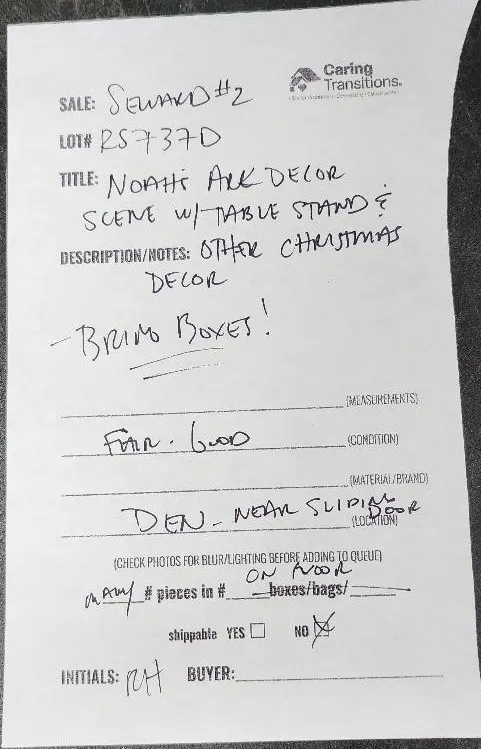 Caring
Transitions®
SALE: SEWARD #2
LOT# RS737D
TITLE: NOAH'S ARK DECOR
SCENE W/ TABLE STAND &
DESCRIPTION/NOTES: OTHER CHRISTMAS
DECOR
- BRING BOXES!
(MEASUREMENTS)
FAIR - GOOD (CONDITION)
(MATERIAL/BRAND)
DEN - NEAR SLIDING DOOR (LOCATION)
(CHECK PHOTOS FOR BLUR/LIGHTING BEFORE ADDING TO QUEUE)
ON FLOOR
MANY # pieces in # boxes/bags/
shippable YES NO
INITIALS: RH BUYER: